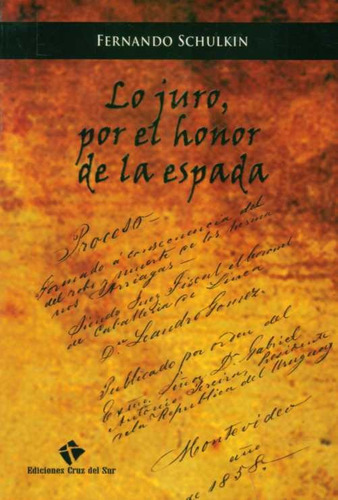 FERNANDO SCHULKIN
Lo juro,
por el honor
de la espada
Proceso
Formado a consecuencia del
del robo y muerte de los herma
nos Yarriagas
Siendo Juez Fiscal el Coronel
de Caballería de Linea
Dn Leandro Gomez.
Publicado por orden del
Exmo Señor D. Gabriel
Antonio Pereira, Presidente
de la Republica del Uruguay
Montevideo
año
de 1858.
Ediciones Cruz del Sur